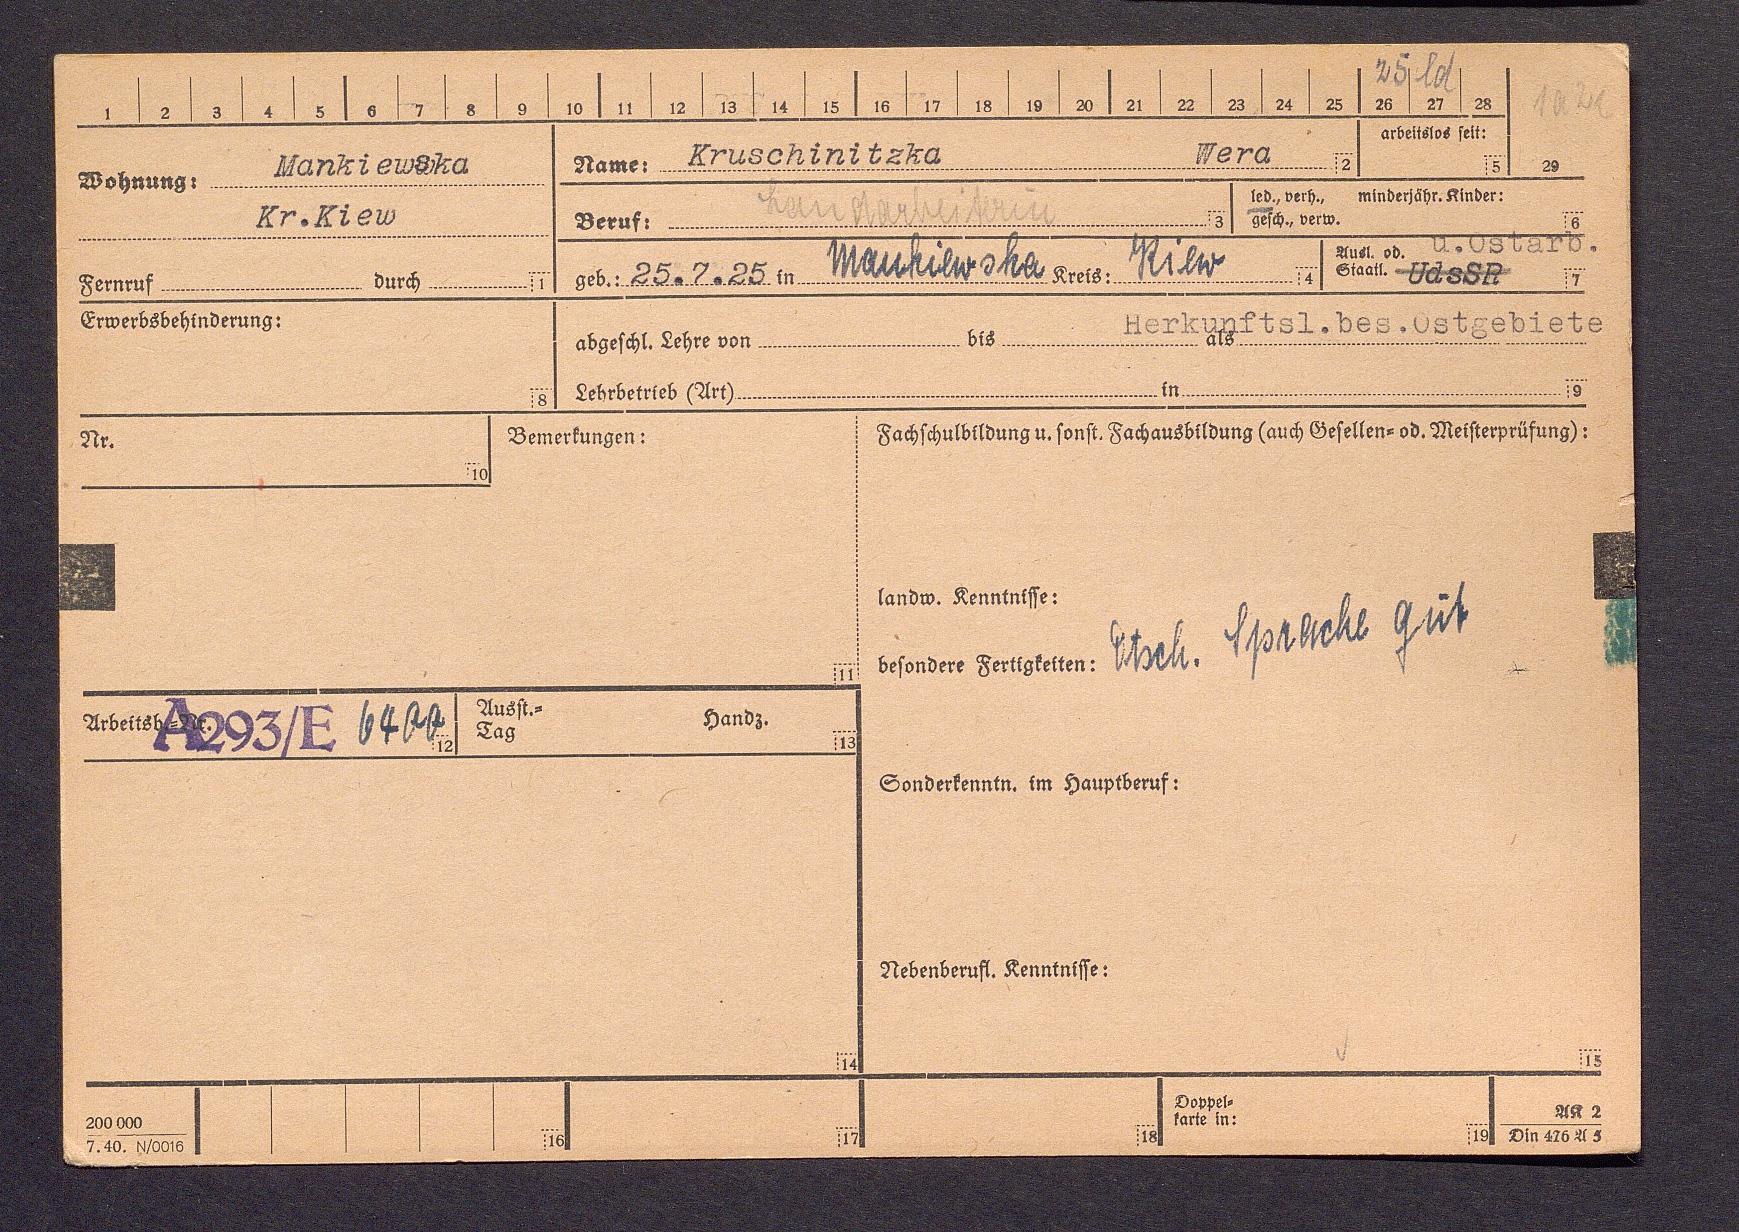 25 ld
1 2 3 4 5 6 7 8 9 10 11 12 13 14 15 16 17 18 19 20 21 22 23 24 25 26 27 28
29
Wohnung: Mankiewska
Kr.Kiew
Fernruf durch 1
Name: Kruschinitzka Wera 2
arbeitslos seit:
5
Beruf: Landarbeiterin 3
led., verh., minderjähr. Kinder:
gesch., verw. 6
geb.: 25.7.25 in Mankiewska Kreis: Kiew 4
Ausl. od. u.Ostarb.
Staatl. UdsSR 7
Erwerbsbehinderung:
8
Herkunftsl.bes.Ostgebiete
abgeschl. Lehre von bis als
Lehrbetrieb (Art) in 9
Nr.
10
Bemerkungen:
11
Fachschulbildung u. sonst. Fachausbildung (auch Gesellen- od. Meisterprüfung):
landw. Kenntnisse:
besondere Fertigkeiten: Dtsch. Sprache gut
Arbeitsb.-Nr. A293/E 6400 12
Ausst.-
Tag
Handz.
13
Sonderkenntn. im Hauptberuf:
Nebenberufl. Kenntnisse:
14
15
200 000
7. 40. N/0016
16
17
18
Doppel-
karte in:
19
AK 2
Din 476 A 5